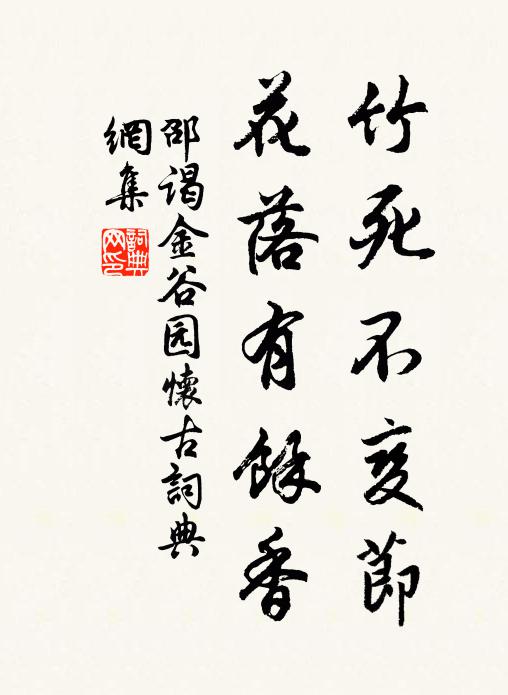 竹死不变節
花落有餘香
邵谒金谷园懷古詞典
網集
詞典網印